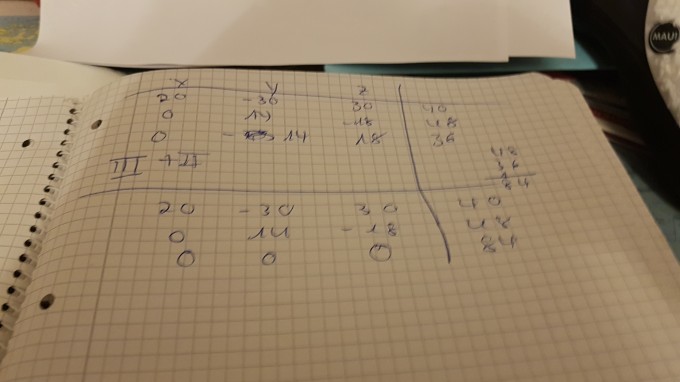 MAUI
x y z
20 -30 30 40
0 14 -18 48
0 - 14 18 36
III + II
48
36
84
20 -30 30 40
0 14 -18 48
0 0 0 84